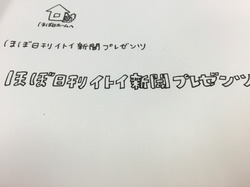 ほぼ日ホームへ
ほぼ日刊イトイ新聞プレゼンツ
ほぼ日刊イトイ新聞プレゼンツ